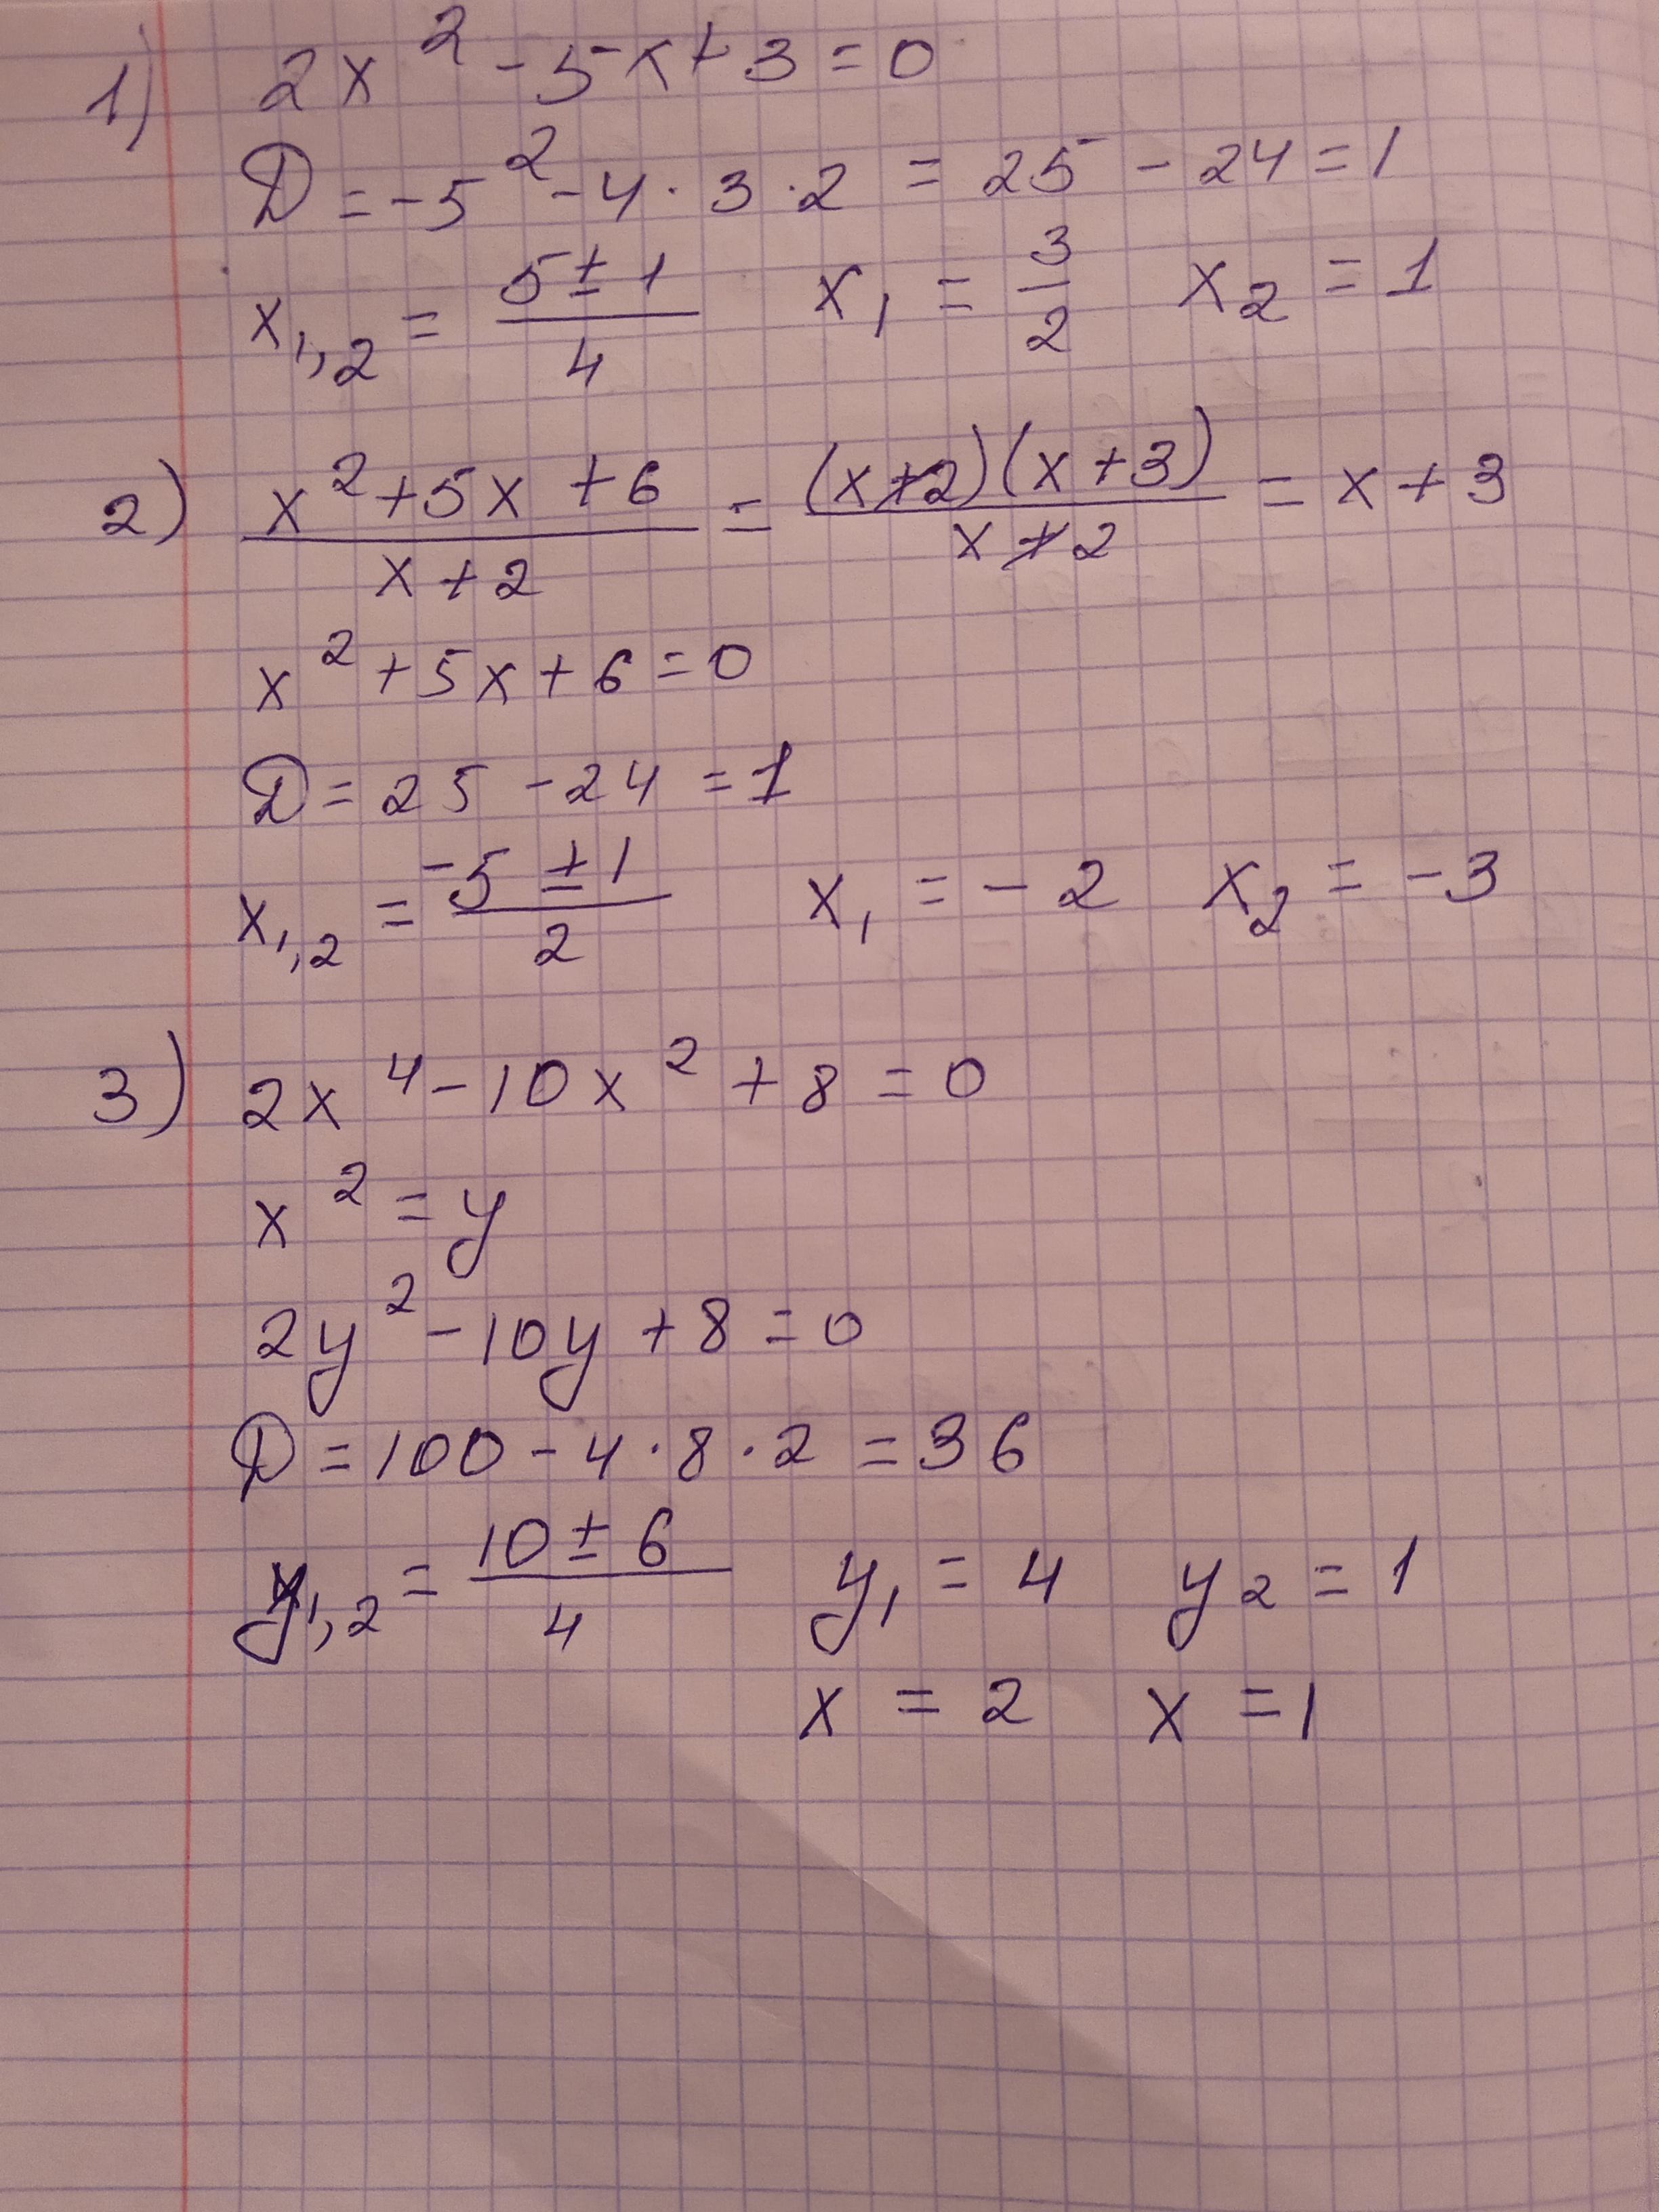 1) 2x² - 5x + 3 = 0
D = -5² - 4 · 3 · 2 = 25 - 24 = 1
x₁,₂ = (5 ± 1)/4 x₁ = 3/2 x₂ = 1
2) (x² + 5x + 6)/(x + 2) = ((x + 2)(x + 3))/(x + 2) = x + 3
x² + 5x + 6 = 0
D = 25 - 24 = 1
x₁,₂ = (-5 ± 1)/2 x₁ = -2 x₂ = -3
3) 2x⁴ - 10x² + 8 = 0
x² = y
2y² - 10y + 8 = 0
D = 100 - 4 · 8 · 2 = 36
y₁,₂ = (10 ± 6)/4 y₁ = 4 y₂ = 1
x = 2 x = 1